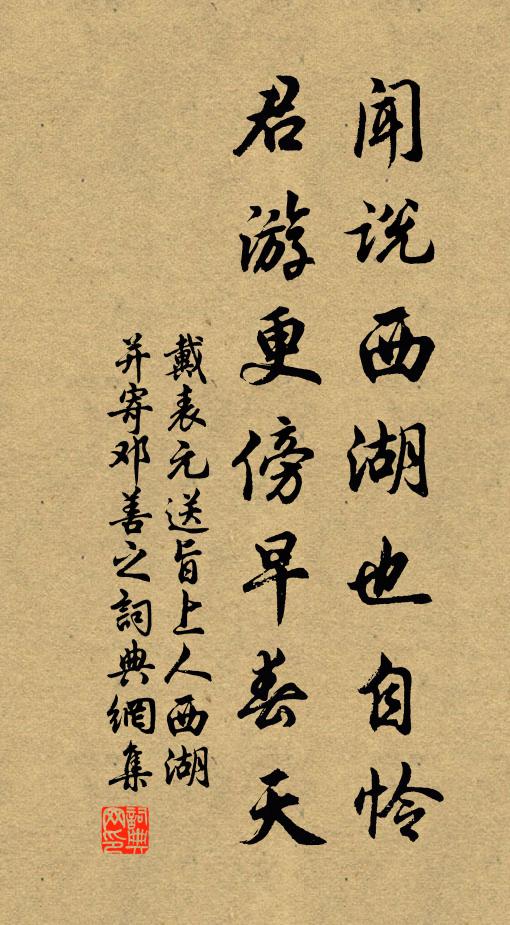 闻说西湖也自怜
君游更傍早春天
戴表元送旨上人西湖
并寄邓善之詞典網集
詞典網印